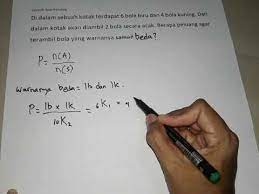 Di dalam sebuah kotak terdapat 6 bola biru dan 4 bola kuning. Dari
dalam kotak akan diambil 2 bola secara acak. Berapa peluang agar
terambil bola yang warnanya sama? beda?
P = n(A)
n(S)
Warnanya beda = 1b dan 1k.
P = 1b x 1k = 6K1 =
10K2